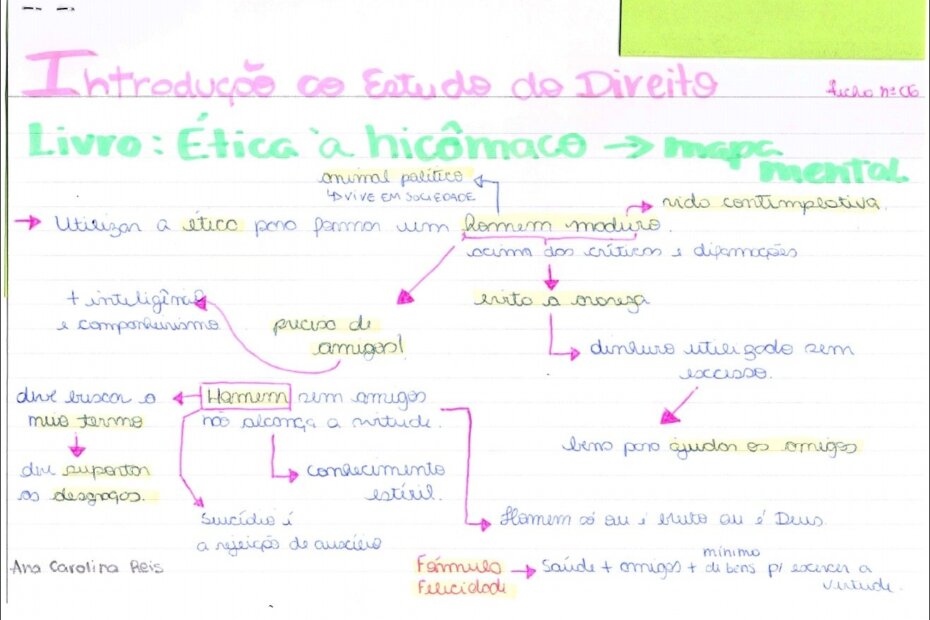 Introdução ao Estudo do Direito
ficha nº 06
Livro: Ética à Nicômaco → mapa
mental.
animal político
↳ VIVE EM SOCIEDADE
vida contemplativa.
→ Utilizar a ética para formar um homem maduro.
acima dos críticos e difamações
+ inteligência
e companheirismo
evita a avareza
precisa de
amigos!
dinheiro utilizado sem
excesso.
deve buscar o
meio termo
Homem sem amigos
não alcança a virtude.
bens para ajudar os amigos
deve suportar
as desgraças.
conhecimento
estéril.
Suicídio é
a rejeição de auxílio
Homem só ou é bruto ou é Deus.
Ana Carolina Reis
Fórmula
Felicidade
→ Saúde + amigos + mínimo
de bens p/ exercer a
virtude.